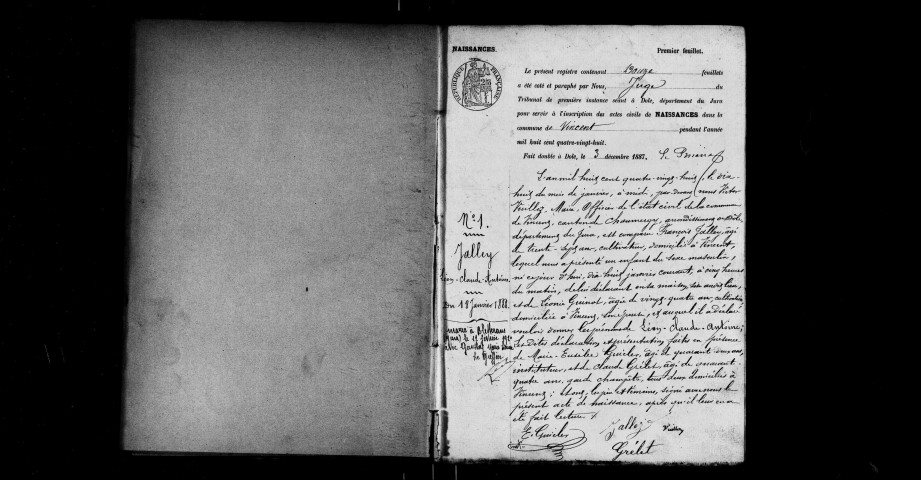 NAISSANCES.
Premier feuillet.
RÉPUBLIQUE FRANÇAISE
Le présent registre contenant Douze feuillets
a été coté et paraphé par Nous, Juge du
Tribunal de première instance séant à Dole, département du Jura
pour servir à l'inscription des actes civils de NAISSANCES dans la
commune de Vincent pendant l'année
mil huit cent quatre-vingt-huit.
Fait double à Dole, le 3 décembre 1887.
L'an mil huit cent quatre-vingt-huit, le dix-
huit du mois de janvier, à midi, par devant nous Victor
Vuillez, Maire, Officier de l'état civil de la commune
de Vincent, canton de Chaumergy, arrondissement de Dole,
département du Jura, est comparu François Jalley, âgé
de trente-sept ans, cultivateur, domicilié à Vincent,
lequel nous a présenté un enfant du sexe masculin,
né ce jour d'hui, dix-huit janvier courant, à cinq heures
du matin, de lui déclarant en sa maison, sise audit lieu,
et de Léonie Guinot, âgée de vingt-quatre ans, cultivatrice,
domiciliée à Vincent, son épouse, et auquel il a déclaré
vouloir donner les prénoms de Léon-Claude-Antoine;
Les dites déclaration et présentation faites en présence
de Marie-Emilien Guicler, âgé de quarante deux ans,
instituteur, et de Claude Grélet, âgé de quarante-
quatre ans, garde champêtre, tous deux domiciliés à
Vincent; et ont, les père et témoins, signé avec nous le
présent acte de naissance, après qu'il leur en a
été fait lecture.
E. Guicler Jalley Vuillez
Grélet
N° 1.
Jalley
Léon-Claude-Antoine
Du 18 Janvier 1888.
marié à
le 18 février